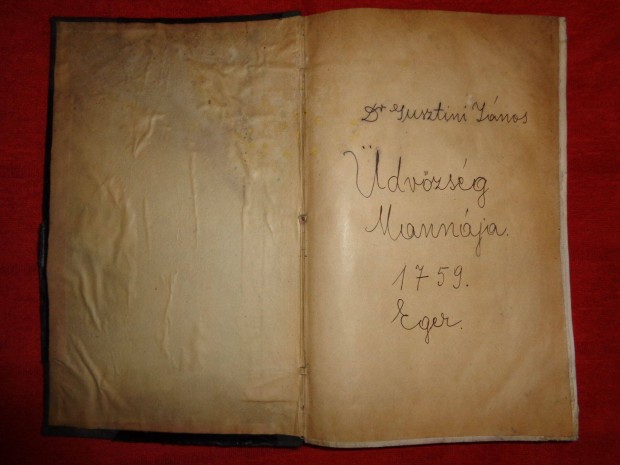 Dr Gusztini János
Üdvözség
Mannája.
1759.
Eger.